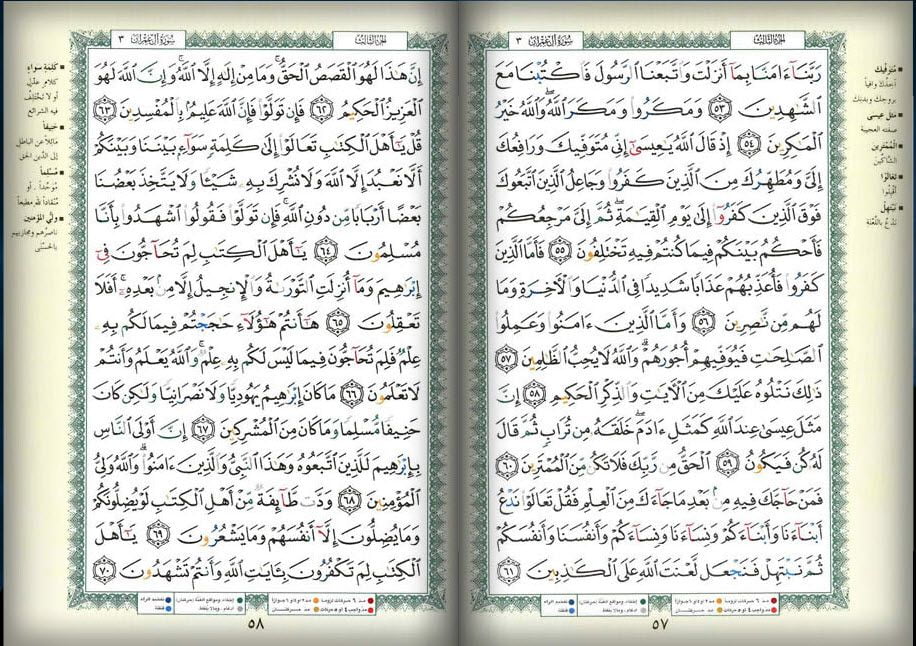 سُورَةُ آلِ عِمْرَانَ ٣
الجزء الثالث
رَبَّنَآ ءَامَنَّا بِمَآ أَنزَلْتَ وَٱتَّبَعْنَا ٱلرَّسُولَ فَٱكْتُبْنَا مَعَ
ٱلشَّٰهِدِينَ ٥٣ وَمَكَرُوا۟ وَمَكَرَ ٱللَّهُ ۖ وَٱللَّهُ خَيْرُ
ٱلْمَٰكِرِينَ ٥٤ إِذْ قَالَ ٱللَّهُ يَٰعِيسَىٰٓ إِنِّى مُتَوَفِّيكَ وَرَافِعُكَ
إِلَىَّ وَمُطَهِّرُكَ مِنَ ٱلَّذِينَ كَفَرُوا۟ وَجَاعِلُ ٱلَّذِينَ ٱتَّبَعُوكَ
فَوْقَ ٱلَّذِينَ كَفَرُوٓا۟ إِلَىٰ يَوْمِ ٱلْقِيَٰمَةِ ۖ ثُمَّ إِلَىَّ مَرْجِعُكُمْ
فَأَحْكُمُ بَيْنَكُمْ فِيمَا كُنتُمْ فِيهِ تَخْتَلِفُونَ ٥٥ فَأَمَّا ٱلَّذِينَ
كَفَرُوا۟ فَأُعَذِّبُهُمْ عَذَابًا شَدِيدًا فِى ٱلدُّنْيَا وَٱلْءَاخِرَةِ وَمَا
لَهُم مِّن نَّٰصِرِينَ ٥٦ وَأَمَّا ٱلَّذِينَ ءَامَنُوا۟ وَعَمِلُوا۟
ٱلصَّٰلِحَٰتِ فَيُوَفِّيهِمْ أُجُورَهُمْ ۗ وَٱللَّهُ لَا يُحِبُّ ٱلظَّٰلِمِينَ ٥٧
ذَٰلِكَ نَتْلُوهُ عَلَيْكَ مِنَ ٱلْءَايَٰتِ وَٱلذِّكْرِ ٱلْحَكِيمِ ٥٨ إِنَّ
مَثَلَ عِيسَىٰ عِندَ ٱللَّهِ كَمَثَلِ ءَادَمَ ۖ خَلَقَهُۥ مِن تُرَابٍ ثُمَّ قَالَ
لَهُۥ كُن فَيَكُونُ ٥٩ ٱلْحَقُّ مِن رَّبِّكَ فَلَا تَكُن مِّنَ ٱلْمُمْتَرِينَ ٦٠
فَمَنْ حَآجَّكَ فِيهِ مِنۢ بَعْدِ مَا جَآءَكَ مِنَ ٱلْعِلْمِ فَقُلْ تَعَالَوْا۟ نَدْعُ
أَبْنَآءَنَا وَأَبْنَآءَكُمْ وَنِسَآءَنَا وَنِسَآءَكُمْ وَأَنفُسَنَا وَأَنفُسَكُمْ
ثُمَّ نَبْتَهِلْ فَنَجْعَل لَّعْنَتَ ٱللَّهِ عَلَى ٱلْكَٰذِبِينَ ٦١
مُتَوَفِّيكَ
مثل عيسى
صفته العجيبة
الْمُمْتَرِينَ
الشاكّين
تَعَالَوْا
أقبلوا
نَبْتَهِلْ
ندع باللعنة
٥٧
سُورَةُ آلِ عِمْرَانَ ٣
الجزء الثالث
إِنَّ هَٰذَا لَهُوَ ٱلْقَصَصُ ٱلْحَقُّ ۚ وَمَا مِنْ إِلَٰهٍ إِلَّا ٱللَّهُ ۚ وَإِنَّ ٱللَّهَ لَهُوَ
ٱلْعَزِيزُ ٱلْحَكِيمُ ٦٢ فَإِن تَوَلَّوْا۟ فَإِنَّ ٱللَّهَ عَلِيمٌۢ بِٱلْمُفْسِدِينَ ٦٣
قُلْ يَٰٓأَهْلَ ٱلْكِتَٰبِ تَعَالَوْا۟ إِلَىٰ كَلِمَةٍ سَوَآءٍۭ بَيْنَنَا وَبَيْنَكُمْ
أَلَّا نَعْبُدَ إِلَّا ٱللَّهَ وَلَا نُشْرِكَ بِهِۦ شَيْـًٔا وَلَا يَتَّخِذَ بَعْضُنَا
بَعْضًا أَرْبَابًا مِّن دُونِ ٱللَّهِ ۚ فَإِن تَوَلَّوْا۟ فَقُولُوا۟ ٱشْهَدُوا۟ بِأَنَّا
مُسْلِمُونَ ٦٤ يَٰٓأَهْلَ ٱلْكِتَٰبِ لِمَ تُحَآجُّونَ فِىٓ
إِبْرَٰهِيمَ وَمَآ أُنزِلَتِ ٱلتَّوْرَىٰةُ وَٱلْإِنجِيلُ إِلَّا مِنۢ بَعْدِهِۦٓ ۚ أَفَلَا
تَعْقِلُونَ ٦٥ هَٰٓأَنتُمْ هَٰٓؤُلَآءِ حَٰجَجْتُمْ فِيمَا لَكُم بِهِۦ
عِلْمٌ فَلِمَ تُحَآجُّونَ فِيمَا لَيْسَ لَكُم بِهِۦ عِلْمٌ ۚ وَٱللَّهُ يَعْلَمُ وَأَنتُمْ
لَا تَعْلَمُونَ ٦٦ مَا كَانَ إِبْرَٰهِيمُ يَهُودِيًّا وَلَا نَصْرَانِيًّا وَلَٰكِن كَانَ
حَنِيفًا مُّسْلِمًا وَمَا كَانَ مِنَ ٱلْمُشْرِكِينَ ٦٧ إِنَّ أَوْلَى ٱلنَّاسِ
بِإِبْرَٰهِيمَ لَلَّذِينَ ٱتَّبَعُوهُ وَهَٰذَا ٱلنَّبِىُّ وَٱلَّذِينَ ءَامَنُوا۟ ۗ وَٱللَّهُ وَلِىُّ
ٱلْمُؤْمِنِينَ ٦٨ وَدَّت طَّآئِفَةٌ مِّنْ أَهْلِ ٱلْكِتَٰبِ لَوْ يُضِلُّونَكُمْ
وَمَا يُضِلُّونَ إِلَّآ أَنفُسَهُمْ وَمَا يَشْعُرُونَ ٦٩ يَٰٓأَهْلَ
ٱلْكِتَٰبِ لِمَ تَكْفُرُونَ بِـَٔايَٰتِ ٱللَّهِ وَأَنتُمْ تَشْهَدُونَ ٧٠
كَلِمَةٍ سَوَاءٍ
كلام عدل
أو لا تختلف
فيه الشرائع
حَنِيفًا
مائلا عن الباطل
إلى الدين الحق
مُسْلِمًا
موحّداً، أو
منقاداً لله مطيعاً
وليّ المؤمنين
ناصرهم ومجازيهم
بالحسنى
٥٨